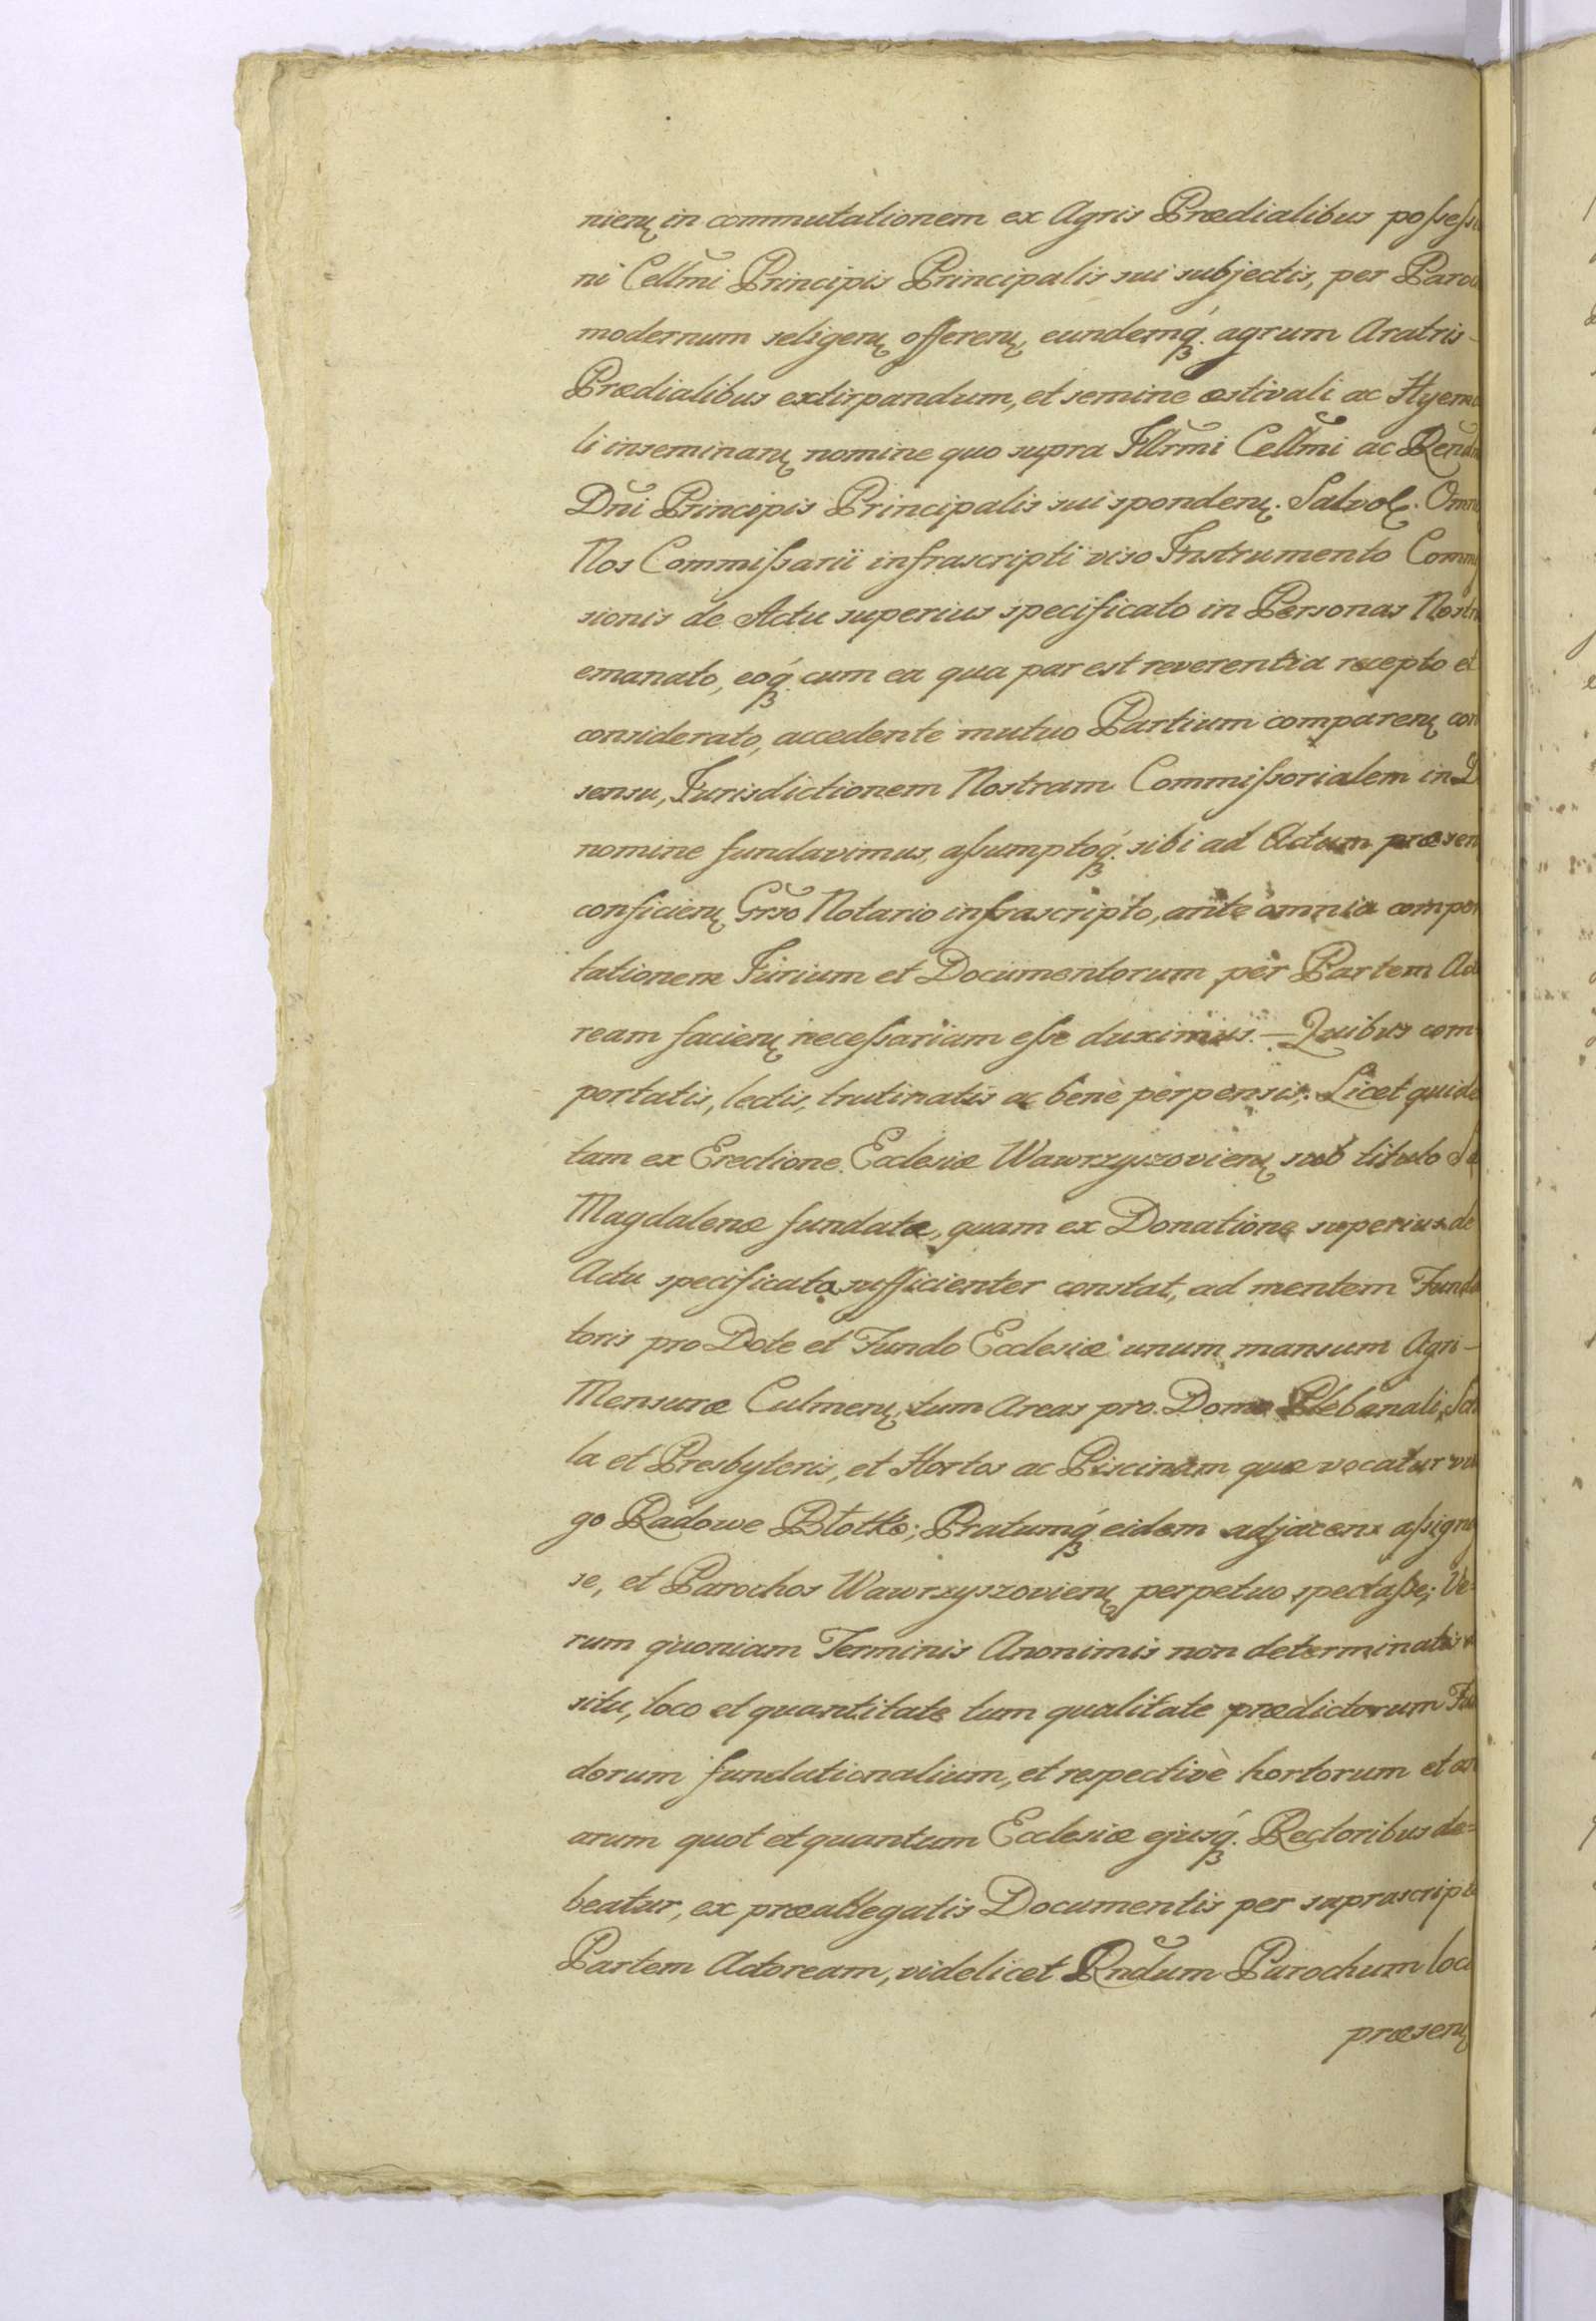 nien in commutationem ex Agris Prædialibus possessi
ni Cellmi Principis Principalis sui subjectis, per Paroc
modernum seligen offeren, eundemq́ʒ agrum Aratris-
Prædialibus extirpandum, et semine æstivali ac Hyema
li inseminan nomine quo supra Illrmi Cellmi ac Rend
Dni Principis Principalis sui sponden. Salvo.
Nos Commissarii infrascripti viso Instrumento Commis
sionis de Actu superius specificato in Personas Nostr
emanato, eoq́ʒ cum ea qua par est reverentia recepto et
considerato, accedente mutuo Partium comparen con
sensu, Jurisdictionem Nostram Commissorialem in D
nomine fundavimus, assumptoq́ʒ sibi ad Actum præsen
conficien Grso Notario infrascripto, ante omnia compor
tationem Jurium et Documentorum per Partem Acto
ream facien necessariam esse duximus. — Quibus com
portatis, lectis, trutinatis ac benè perpensis; Licet quide
tam ex Erectione Ecclesiæ Wawrzyszovien sub titulo
Magdalenæ fundatæ, quam ex Donatione superius de
Actu specificata sufficienter constat, ad mentem Funda
toris pro Dote et Fundo Ecclesiæ unum mansum Agri-
Mensuræ Culmen, tum Areas pro Domo Plebanali, Scho
la et Presbyteris, et Hortos ac Piscinam quæ vocatur vul
go Radowe Błotko; Pratumq́ʒ eidem adjacens assigna
se, et Parochos Wawrzyszovien perpetuo spectasse; Ve=
rum quoniam Terminis Anonimis non determinatis
situ, loco et quantitate tum qualitate prædictorum Fun
dorum fundationalium, et respectivè hortorum et are
arum quot et quantum Ecclesiæ ejusq́ʒ Rectoribus de=
beatur, ex præallegatis Documentis per suprascript
Partem Actoream, videlicet Rndum Parochum loci
præsen